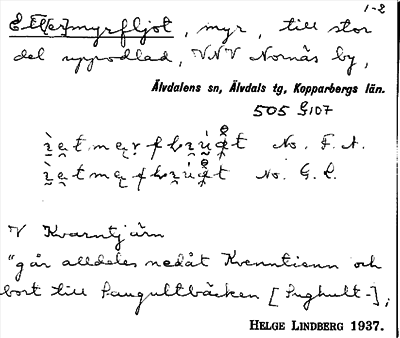 1-2
myrfljot, myr, till stor
del uppodlad, VNV Nornäs by,
Älvdalens sn, Älvdals tg, Kopparbergs län.
505 G107
No. F. A.
No. G. L.
V Kvarntjärn
"går alldeles nedåt Kvenntienn och
bort till Laugultbäcken [Lughult-];
HELGE LINDBERG 1937.